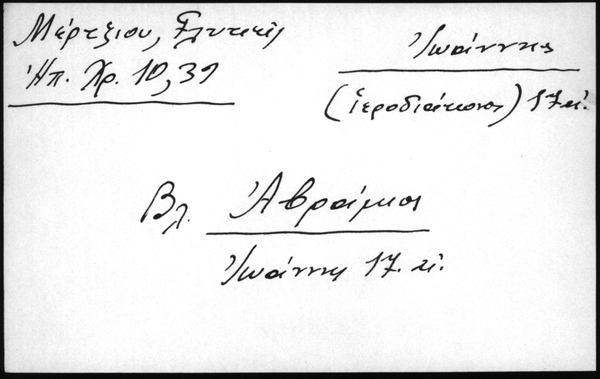 Μέρτζιου, Ἑλυτικὴ
Ἠπ. Χρ. 10, 39
Ἰωάννης
(ἱεροδιάκονος) 17 αἰ.
Βλ. Ἀβράμιος
Ἰωάννης 17. αἰ.